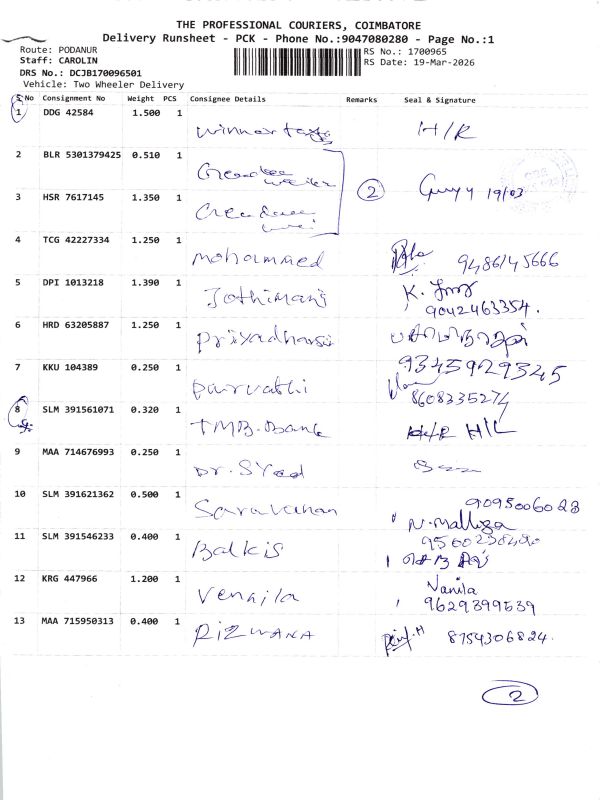 THE PROFESSIONAL COURIERS, COIMBATORE
Delivery Runsheet - PCK - Phone No.:9047080280 - Page No.:1
Route: PODANUR
Staff: CAROLIN
DRS No.: DCJB170096501
Vehicle: Two Wheeler Delivery
RS No.: 1700965
RS Date: 19-Mar-2026
S No Consignment No Weight PCS Consignee Details Remarks Seal & Signature
1 DDG 42584 1.500 1 H/R
2 BLR 5301379425 0.510 1
3 HSR 7617145 1.350 1 2 19/03
4 TCG 42227334 1.250 1 mohammed 9486145666
5 DPI 1013218 1.390 1 Jothimani K.
9042463354.
6 HRD 63205887 1.250 1 Priyadharsi
9345929345
7 KKU 104389 0.250 1 parvathi 8608335274
8 SLM 391561071 0.320 1 TMB.Bank H/L
9 MAA 714676993 0.250 1 Dr.Syed
10 SLM 391621362 0.500 1 Saravanan 9095006028
N.Malliga
11 SLM 391546233 0.400 1 Balkis
12 KRG 447966 1.200 1 Vennila Vanila
9629399539
13 MAA 715950313 0.400 1 RIZWANA 8754306824.
2